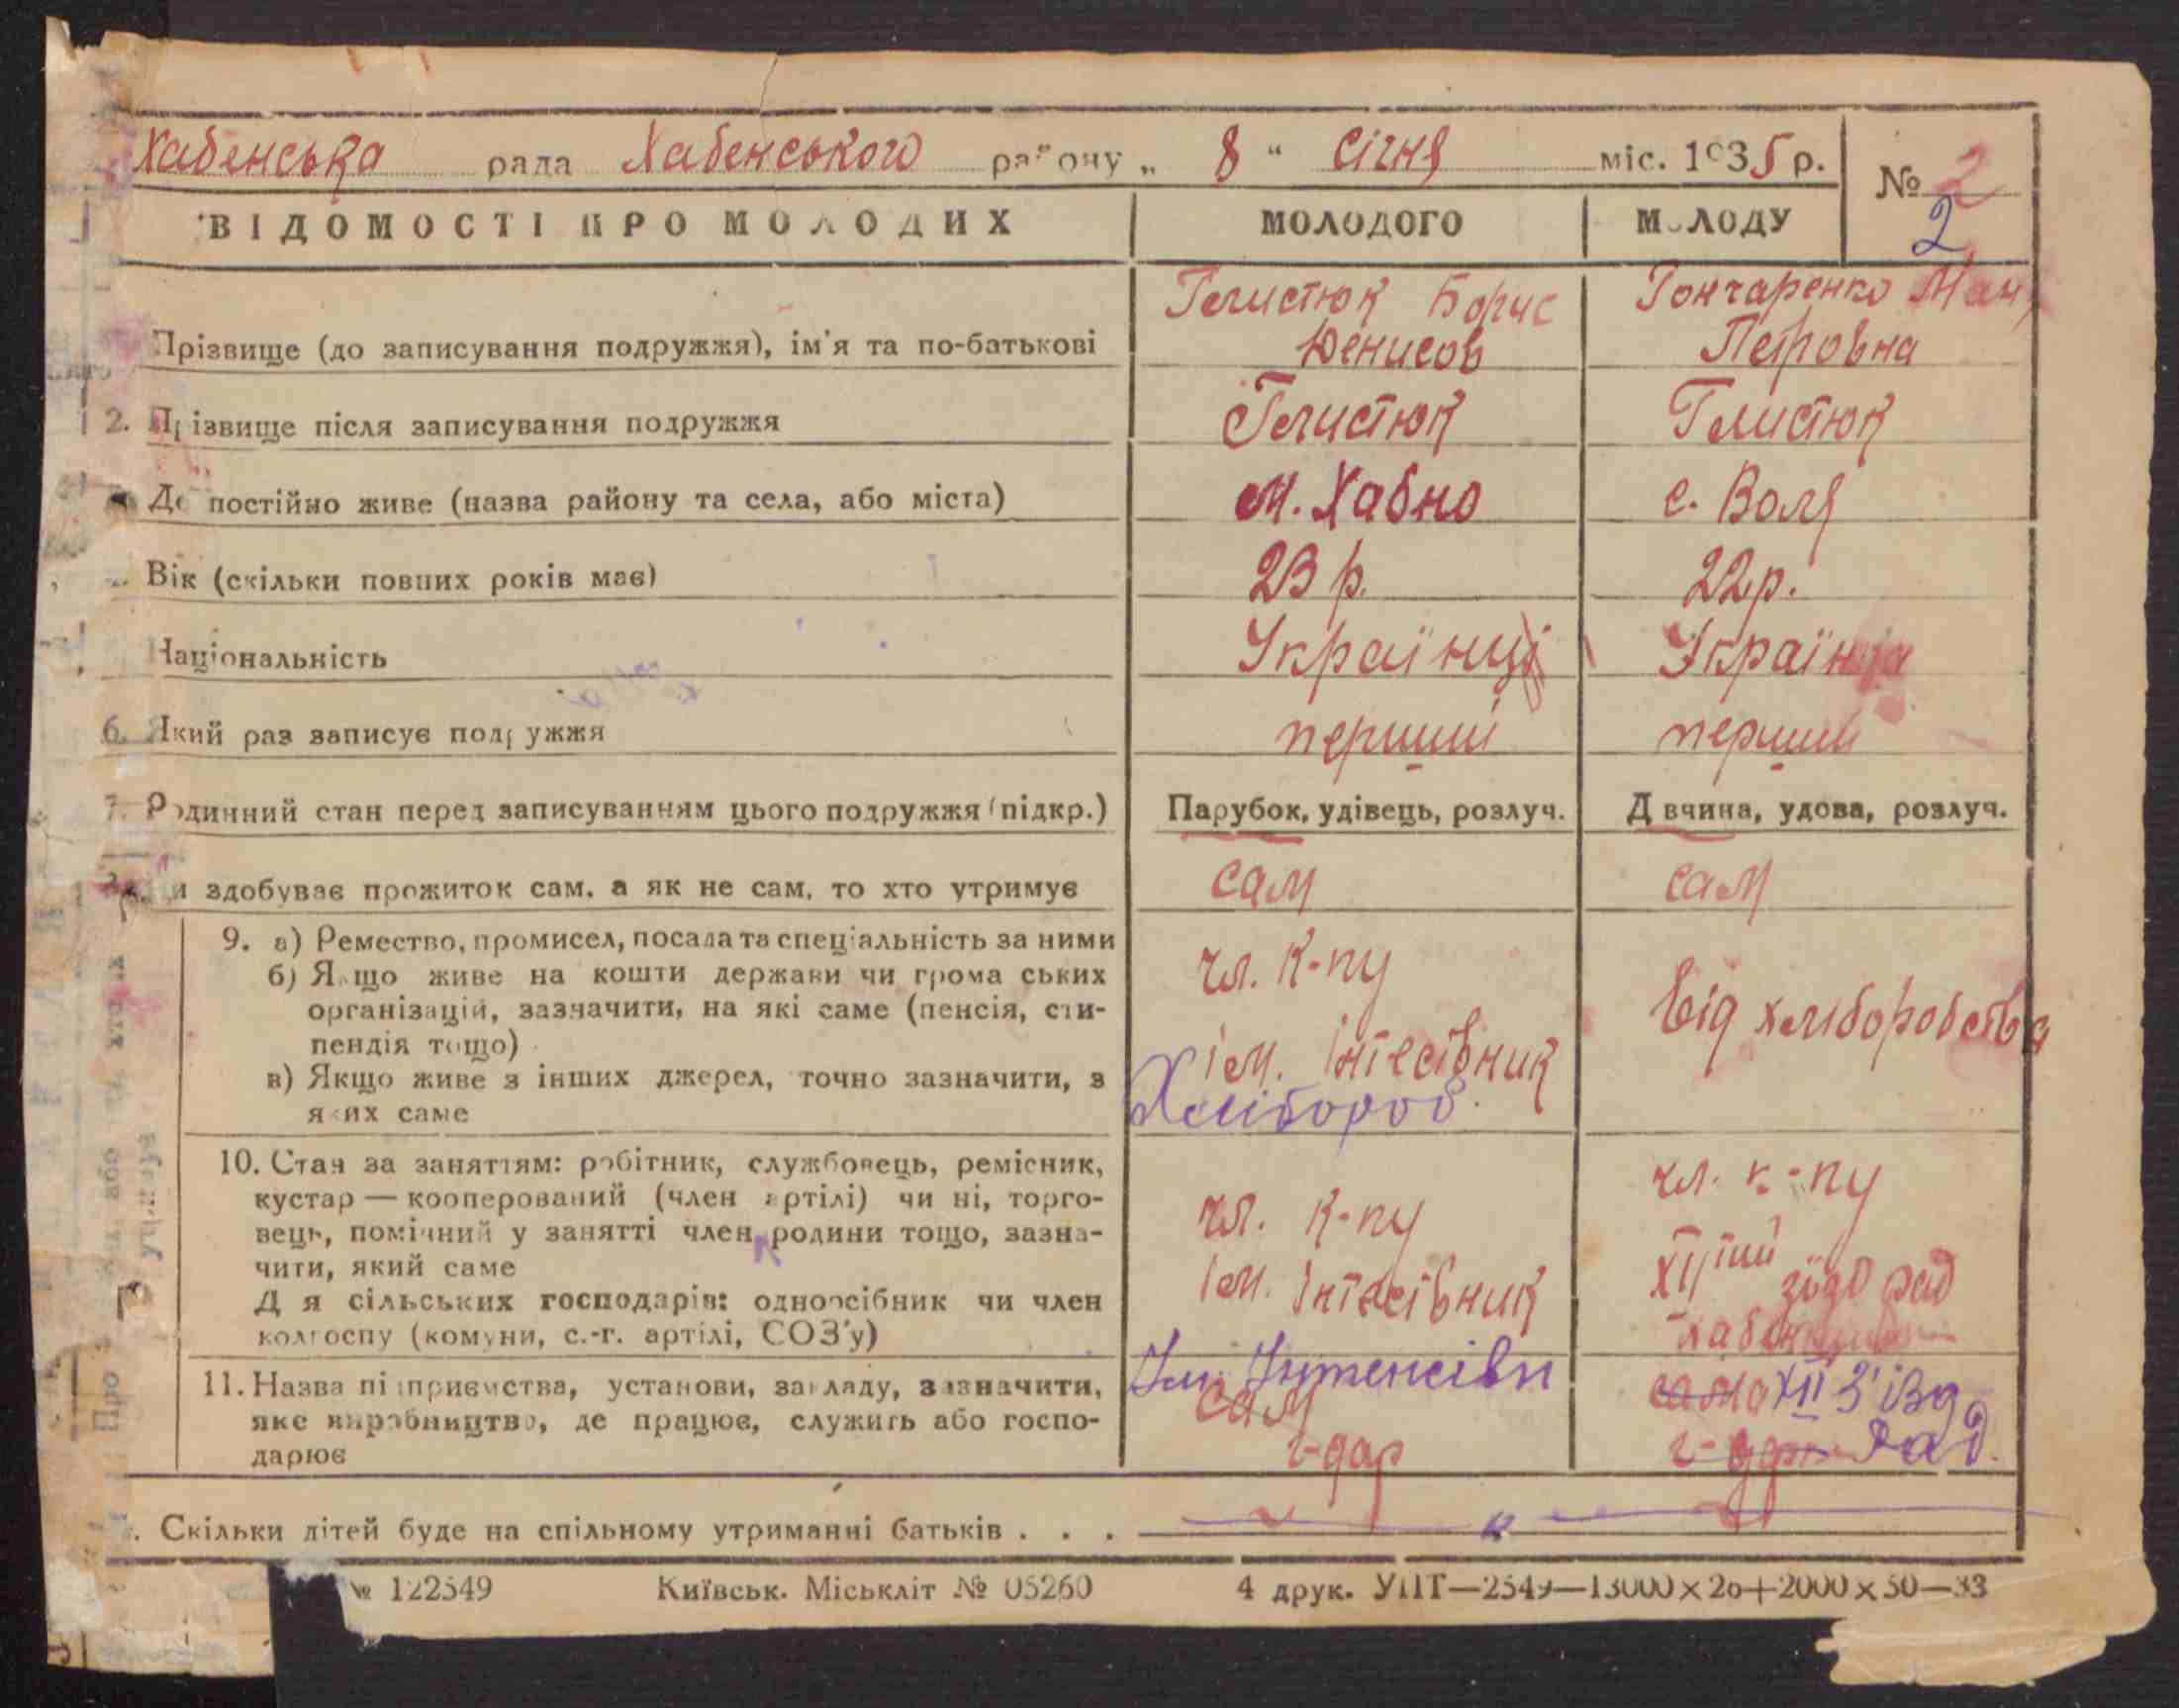 Хабенська рада Хабенського району „ 8 “ Січня міс. 1935 р. № 2
2
ВІДОМОСТІ ПРО МОЛОДИХ МОЛОДОГО МОЛОДУ
Борис Гончаренко
Прізвище (до записування подружжя), ім'я та по-батькові Юенисов Петровна
2. Прізвище після записування подружжя
Де постійно живе (назва району та села, або міста) м. Хабно с. Воля
Вік (скільки повних років має) 23 р. 22 р.
Національність Українці Українка
6. Який раз записує подружжя перший перший
7. Родинний стан перед записуванням цього подружжя (підкр.) Парубок, удівець, розлуч. Дівчина, удова, розлуч.
и здобуває прожиток сам, а як не сам, то хто утримує сам сам
9. а) Ремество, промисел, посада та спеціальність за ними
б) Якщо живе на кошти держави чи громадських чл. к-пу
організацій, зазначити, на які саме (пенсія, сти- від хліборобства
пендія тощо)
в) Якщо живе з інших джерел, точно зазначити, з ім.
яких саме Хлібороб.
10. Стан за заняттям: робітник, службовець, ремісник, чл. к-пу
кустар — кооперований (член артілі) чи ні, торго- чл. к-пу
вець, помічний у занятті член родини тощо, зазна-
чити, який саме зїзд рад
Для сільських господарів: одноосібник чи член ім.
колгоспу (комуни, с.-г. артілі, СОЗ'у)
11. Назва підприємства, установи, закладу, зазначити, сама XII З'їзд
яке виробництво, де працює, служить або госпо- сам Рад.
дарює г-дар
. Скільки дітей буде на спільному утриманні батьків . . .
№ 122549 Київськ. Міськліт № 05260 4 друк. УПТ—2549—13000×20+2000×50—33